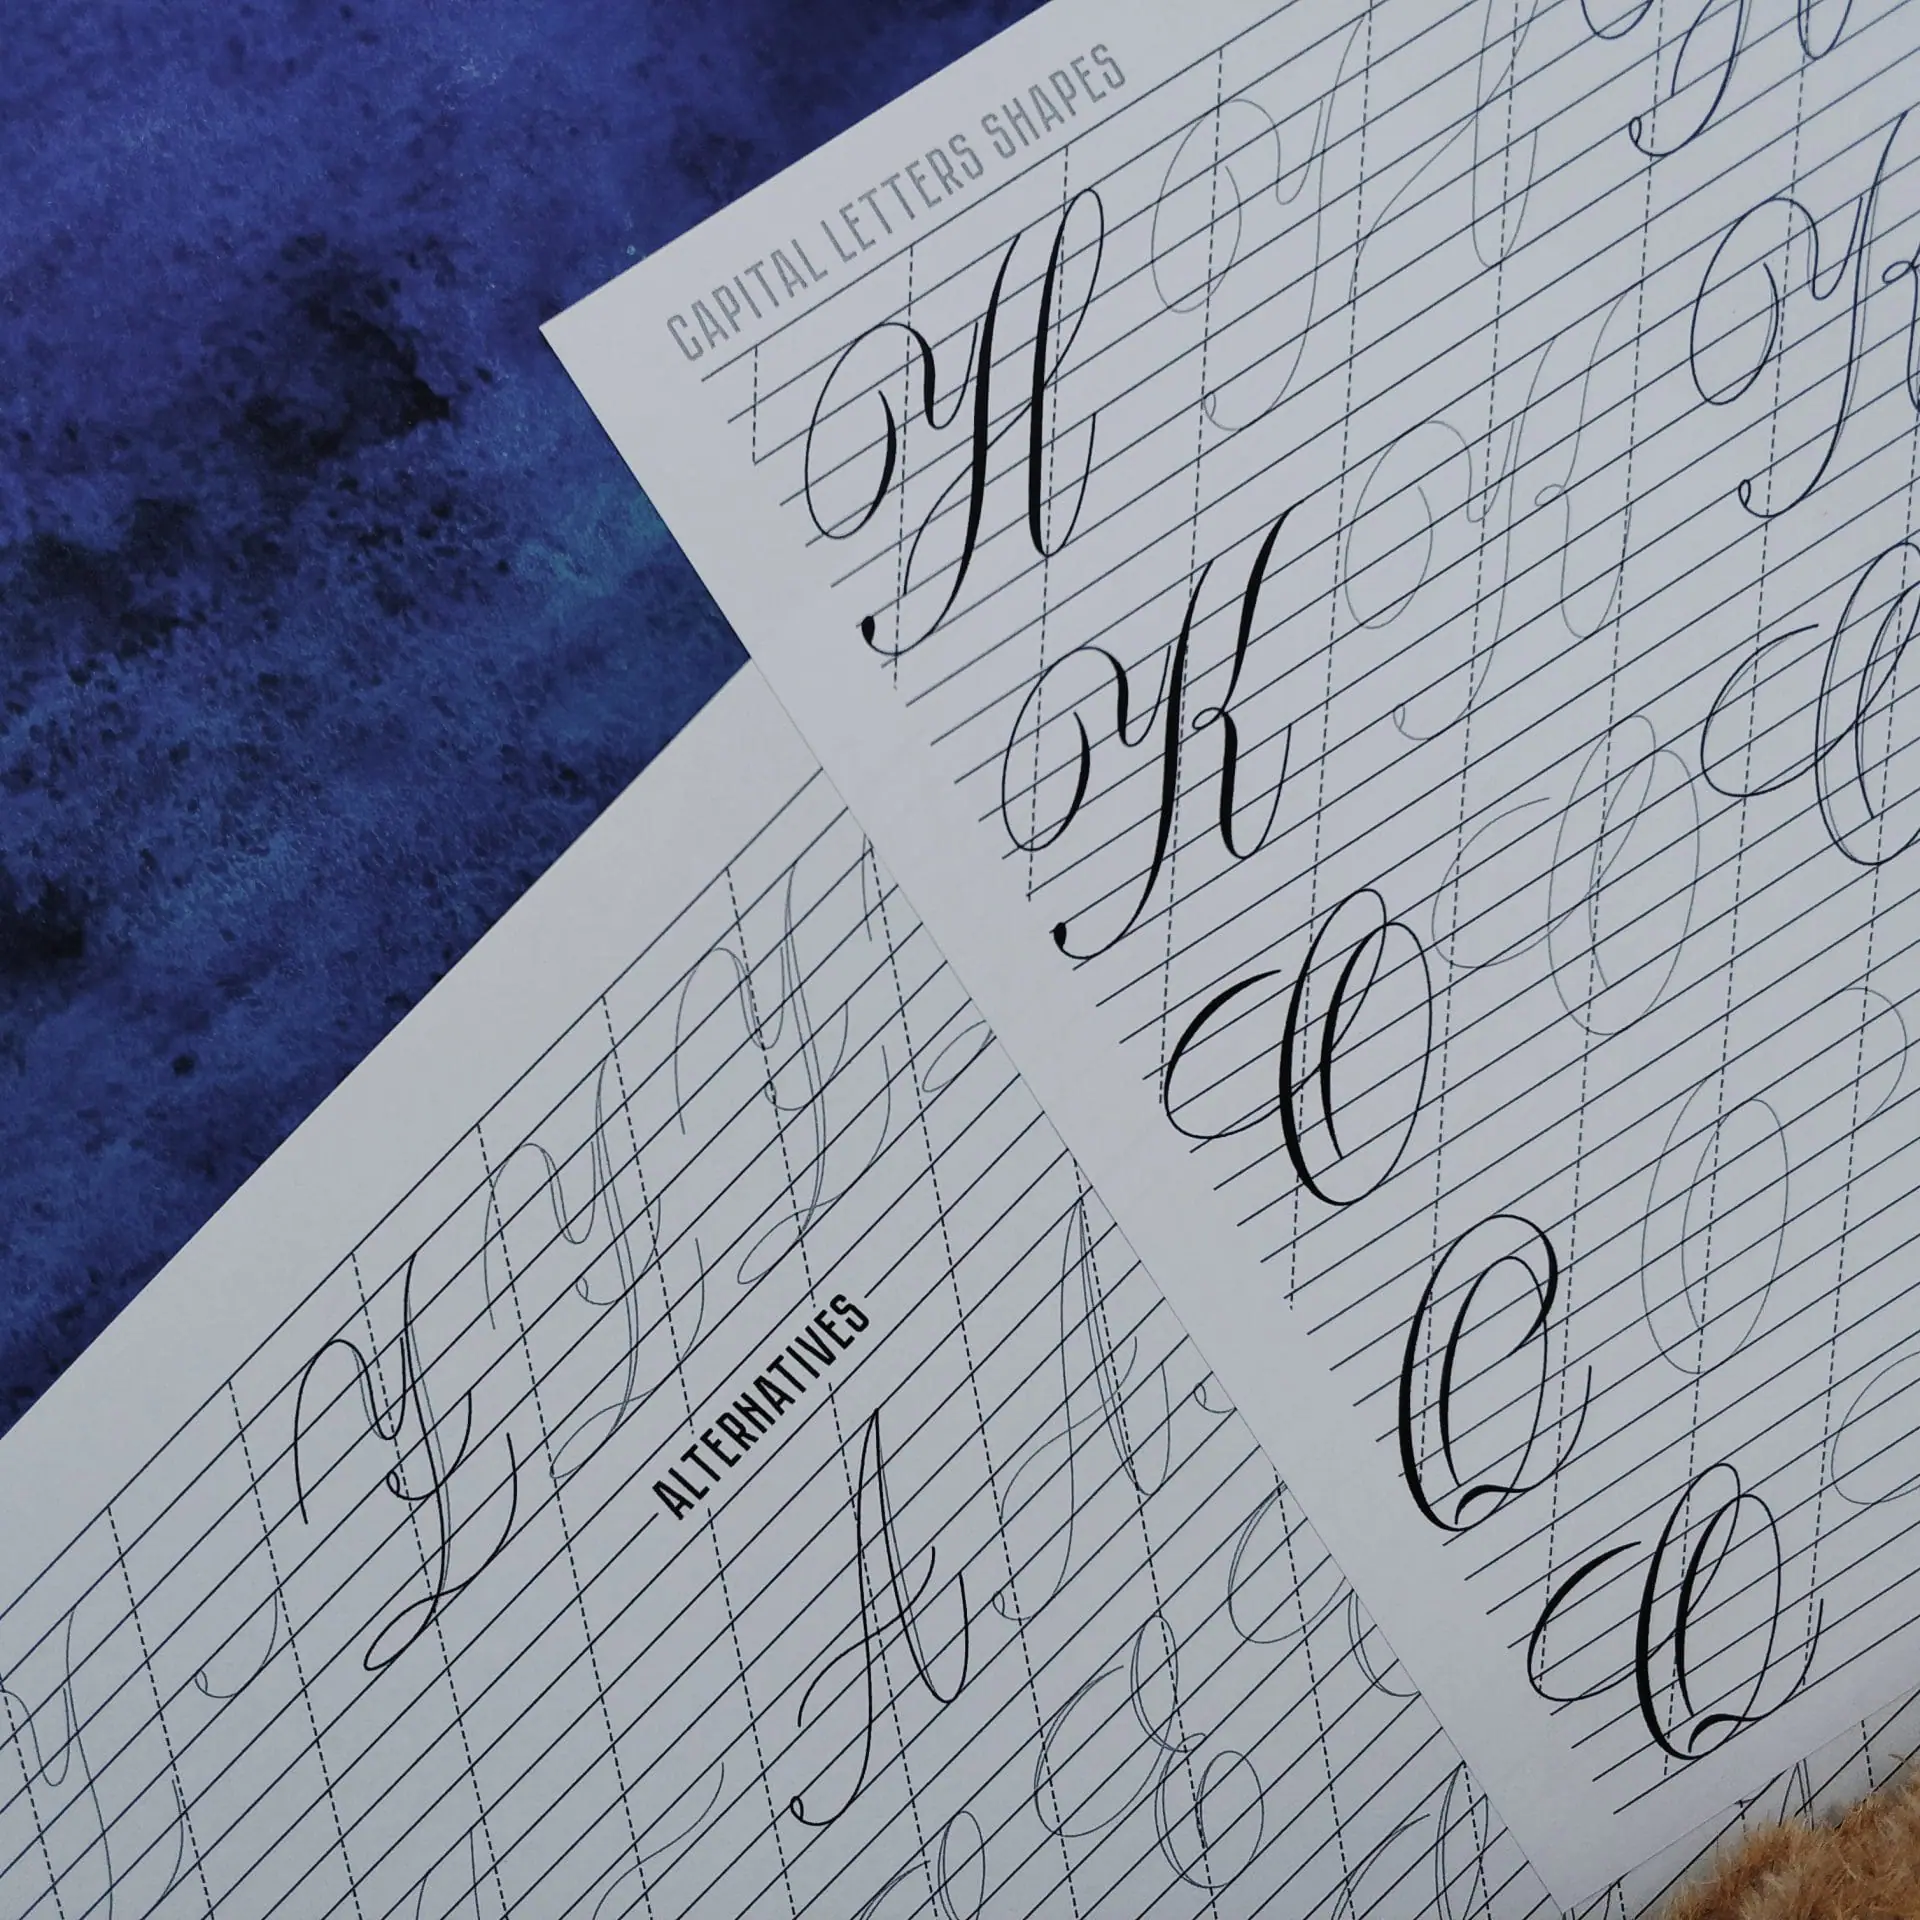 CAPITAL LETTERS SHAPES
H H H
K K K
O O O
Q O
Q
Y Y Y
ALTERNATIVES
A A